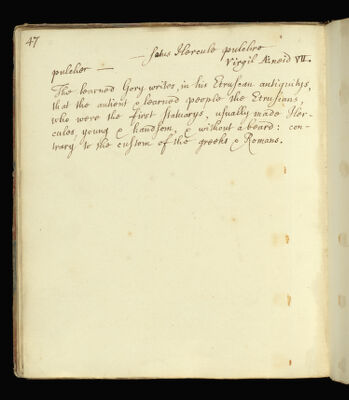 47
— satus Hercule pulchro
Virgil Æneid VII.
pulcher —
The learned Gory writes, in his Etruscan antiquitys,
that the antient & learned people the Etrusians,
who were the first statuarys, usually made Her-
cules, young & handsom, & without a beard: con-
trary to the custom of the greeks & Romans.